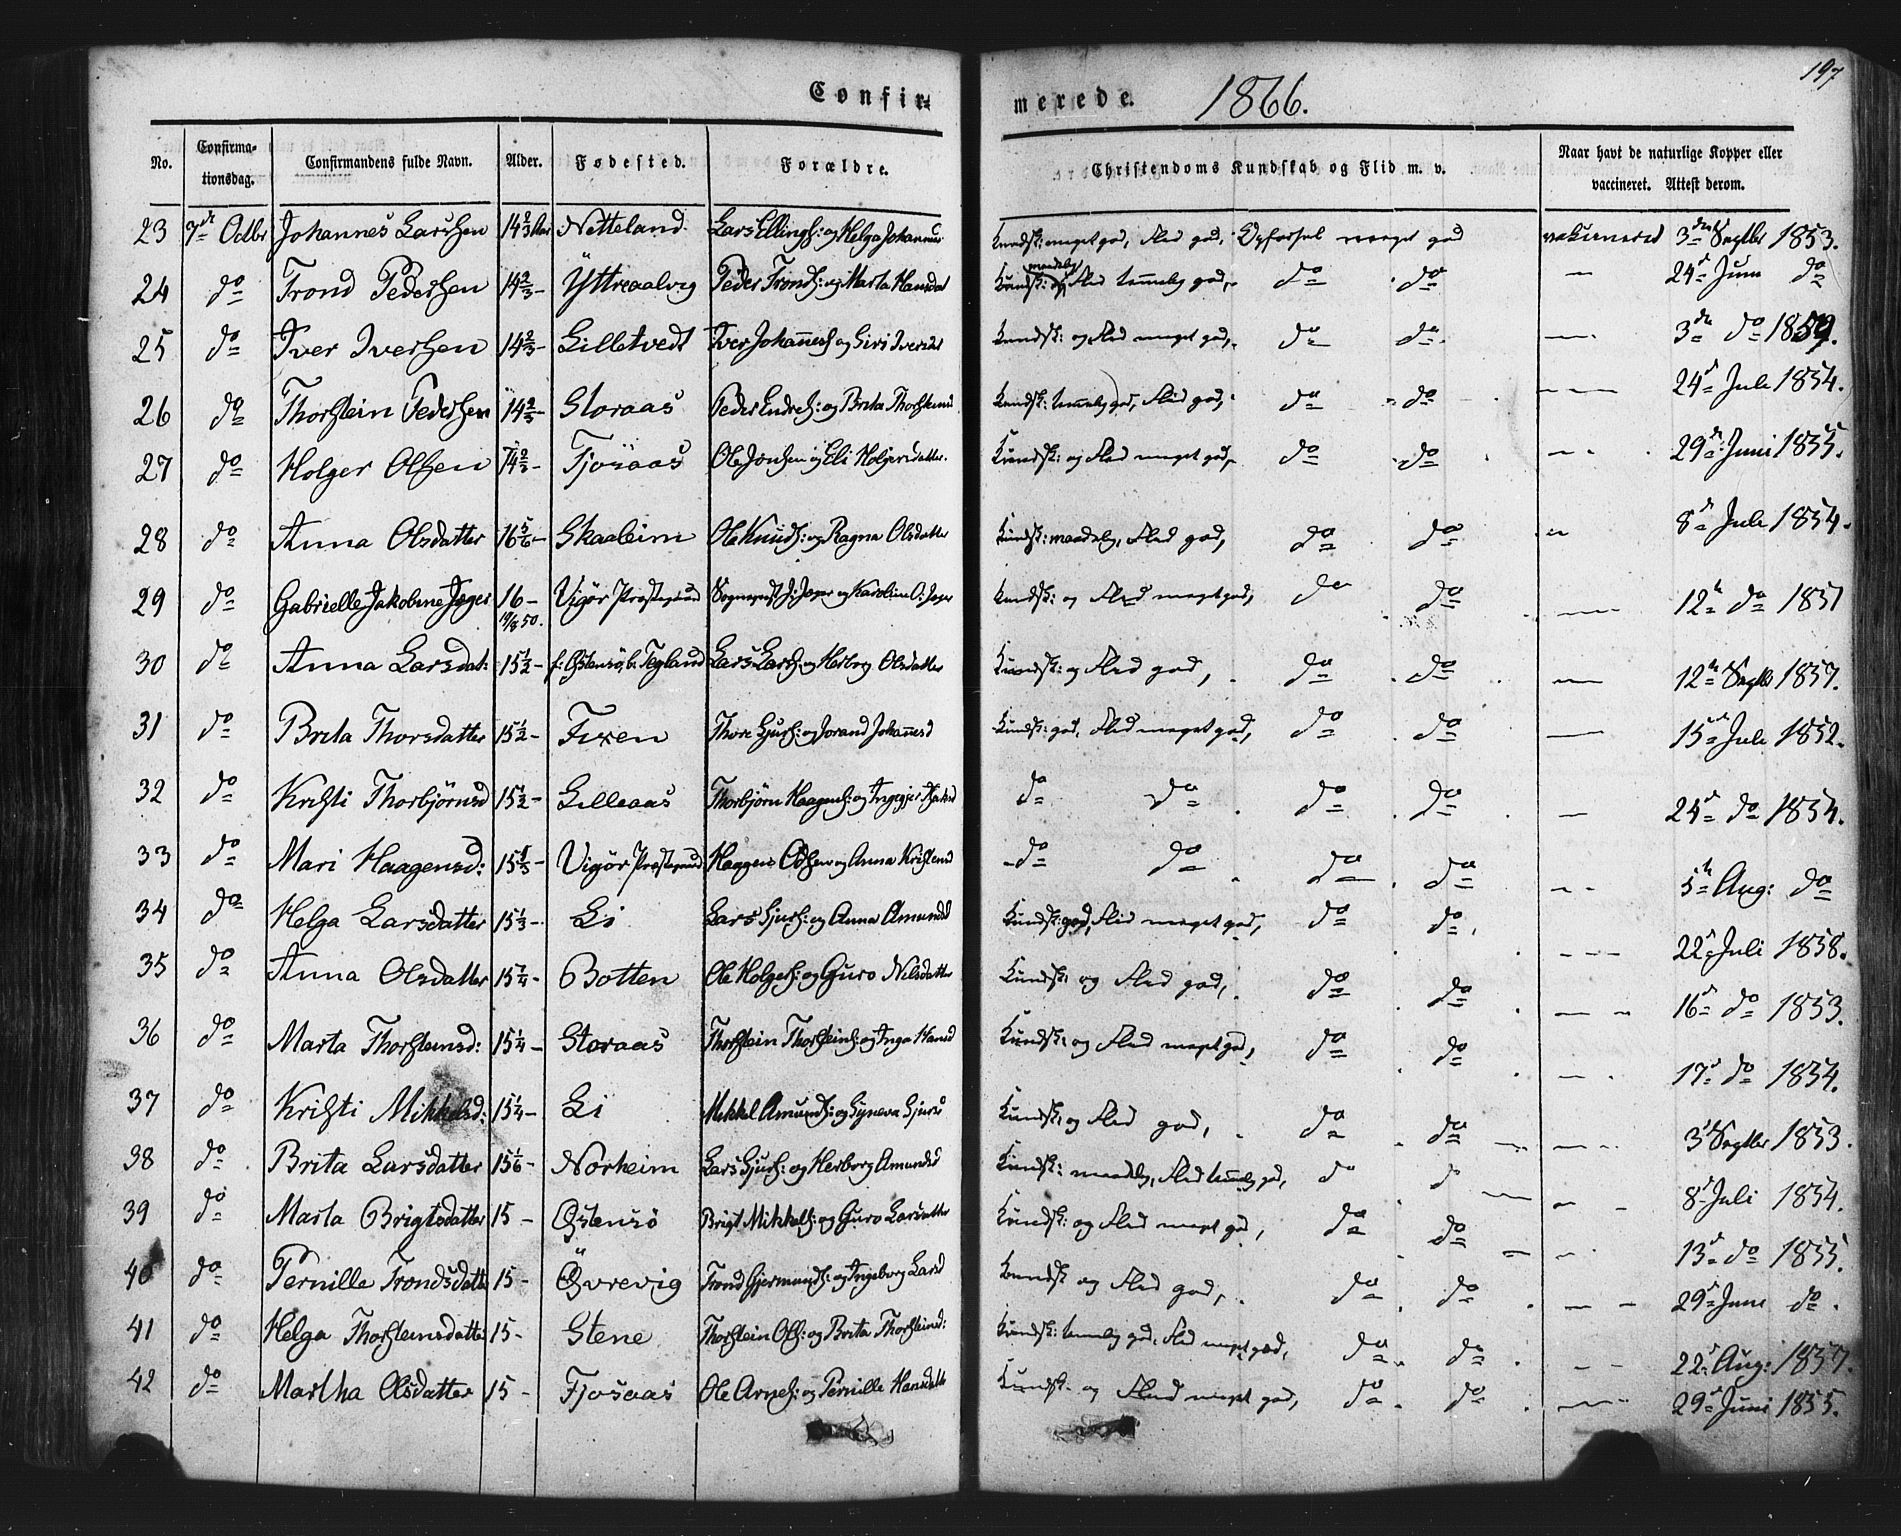 197
Confir= merede. 1866.
No. Confirma-tionsdag. Confirmandens fulde Navn. Alder. Fødested. Forældre. Christendoms Kundskab og Flid m. v. Naar havt de naturlige Kopper eller vaccineret. Attest derom.
23 7de Octbr Johannes Larssen 14 2/3 Aar Netteland Lars Ellings: og Helga Johannes Kundsk: meget god, Flid god, Opførsel meget god vakcinered 3die Septbr 1853.
24 do Trond Pedersen 14 2/3 - Yttreaalvig Peder Tronds: og Marta Hansdat Kundsk: maadelig og Flid temmelig god, do do — 24d Juni do
25 do Iver Iversen 14 2/3 - Lilletvedt Iver Johannes: og Siri Iversdr Kundsk: og Flid meget god, do do — 3die do 1859.
26 do Thorstein Pedersen 14 2/3 - Storaas Peder Endres: og Brita Thorsteins Kundsk: temmelig god, Flid god, do do — 24d Juli 1854.
27 do Holger Olsen 14 2/3 - Fjosaas Ole Jonsen og Eli Holgersdatter Kundsk: og Flid meget god, do do — 29de Juni 1855.
28 do Anna Olsdatter 16 5/6 - Skaaleim Ole Knuds: og Ragna Olsdatter Kundsk: maadelig, Flid god, do do — 8d Juli 1854.
29 do Gabrielle Jakobine Jæger 16 - 19/8 50. Vigør Præstegaard Sognepræst J: Jæger og Karoline O: Jæger Kundsk: og Flid meget god, do do — 12te do 1851
30 do Anna Larsdat: 15 1/2 - f: Østensö, b: Tegland Lars Lars: og Herborg Olsdatter Kundsk: og Flid god, do do — 12te Septbr 1857.
31 do Brita Thorsdatter 15 1/2 - Fixen Thore Sjurs: og Jorand Johannesd Kundsk: god, Flid meget god, do do — 15d Juli 1852.
32 do Kristi Thorbjörnsd 15 1/2 - Lilleaas Thorbjörn Haagens: og Ingegjer do do do do — 24d do 1854.
33 do Mari Haagensd: 15 1/3 - Vigör Præstegaard Haagens Olsen og Anna Kristensd do do do do — 5te Aug: do
34 do Helga Larsdatter 15 1/3 - Li Lars Sjurs: og Anna Amundsd Kundsk: god, Flid meget god, do do — 22d Juli 1858.
35 do Anna Olsdatter 15 1/4 - Botten Ole Holgers: og Guro Nilsdatter Kundsk: og Flid god, do do — 16d do 1853.
36 do Marta Thorsteinsd: 15 1/4 - Storaas Thorstein Thorsteins: og Inga Hansd Kundsk: og Flid meget god, do do — 17d do 1854.
37 do Kristi Mikkelsd: 15 1/4 - Li Mikkel Amunds: og Syneva Sjursd Kundsk: og Flid god, do do — 3d Septbr 1853.
38 do Brita Larsdatter 15 1/6 - Norheim Lars Sjurs: og Herborg Amundsd Kundsk: maadelig, Flid temmelig god, do d — 8d Juli 1854.
39 do Marta Brigtsdatter 15 - Östensö Brigt Mikkels: og Guro Larsdatter Kundsk: og Flid meget god, do do — 13d do 1855.
40 do Pernille Trondsdatter 15 - Övrevig Trond Gjermunds: og Ingeborg Larsd Kundsk: og Flid god, do do — 29d Juni do.
41 do Helga Thorsteinsdatter 15 - Stene Thorstein Ols: og Brita Thorsteind: Kundsk: temmelig god, Flid meget god, do do — 22d Aug: 1857.
42 do Martha Olsdatter 15 - Fjosaas Ole Arnes: og Pernille Hansdatter Kundsk: og Flid meget god, do do — 29d Juni 1855.